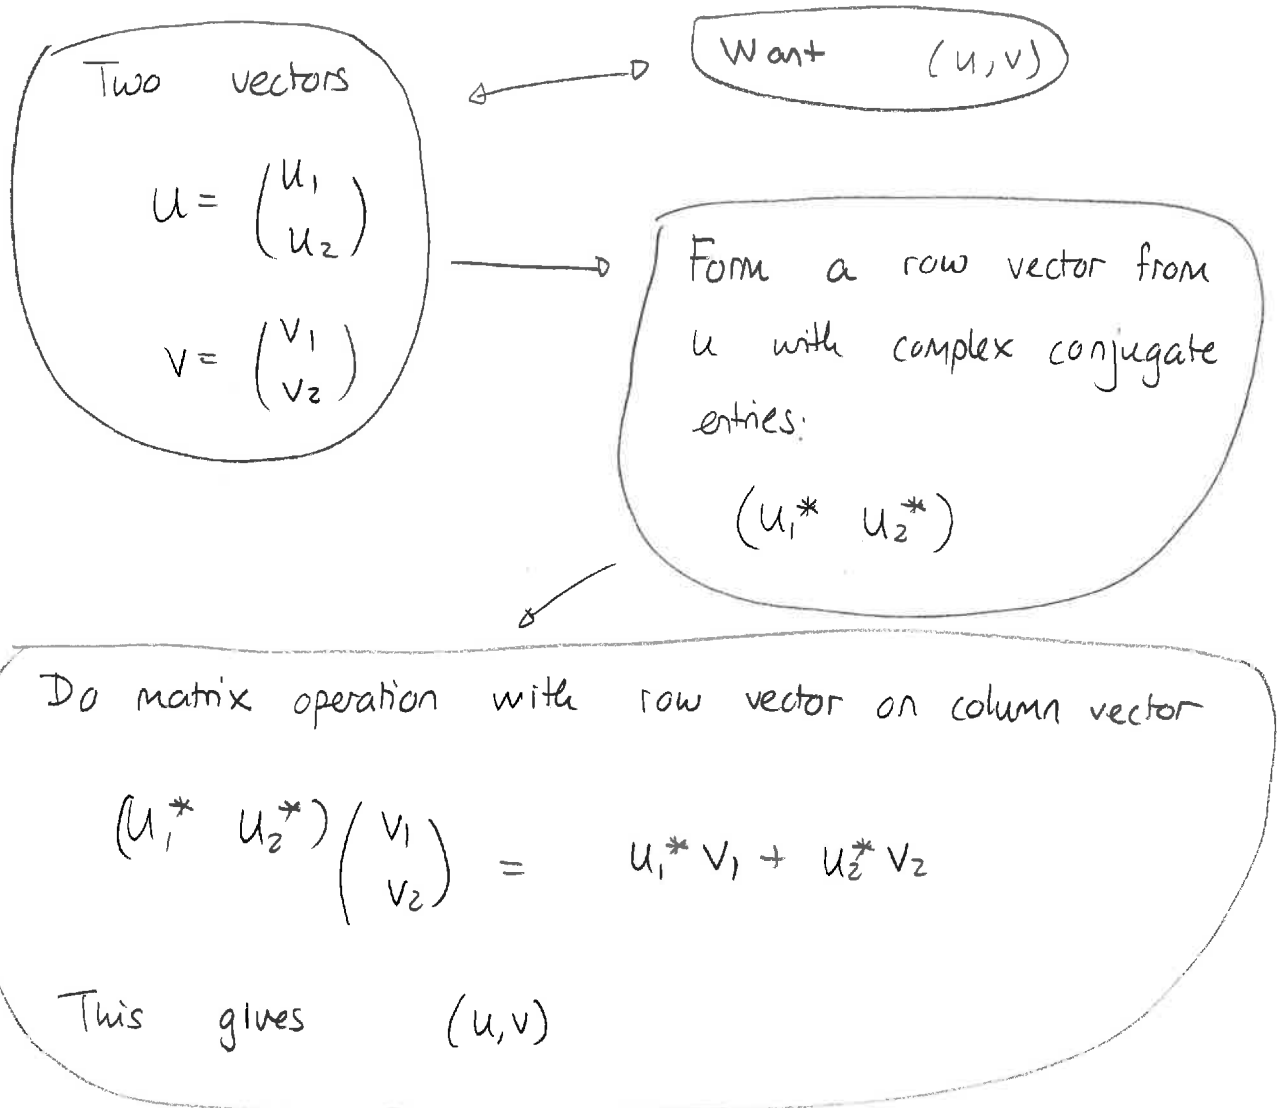 Two vectors
u = (u1
u2)
v = (v1
v2)
Want (u,v)
Form a row vector from
u with complex conjugate
entries:
(u1* u2*)
Do matrix operation with row vector on column vector
(u1* u2*) (v1
v2) = u1* v1 + u2* v2
This gives (u,v)